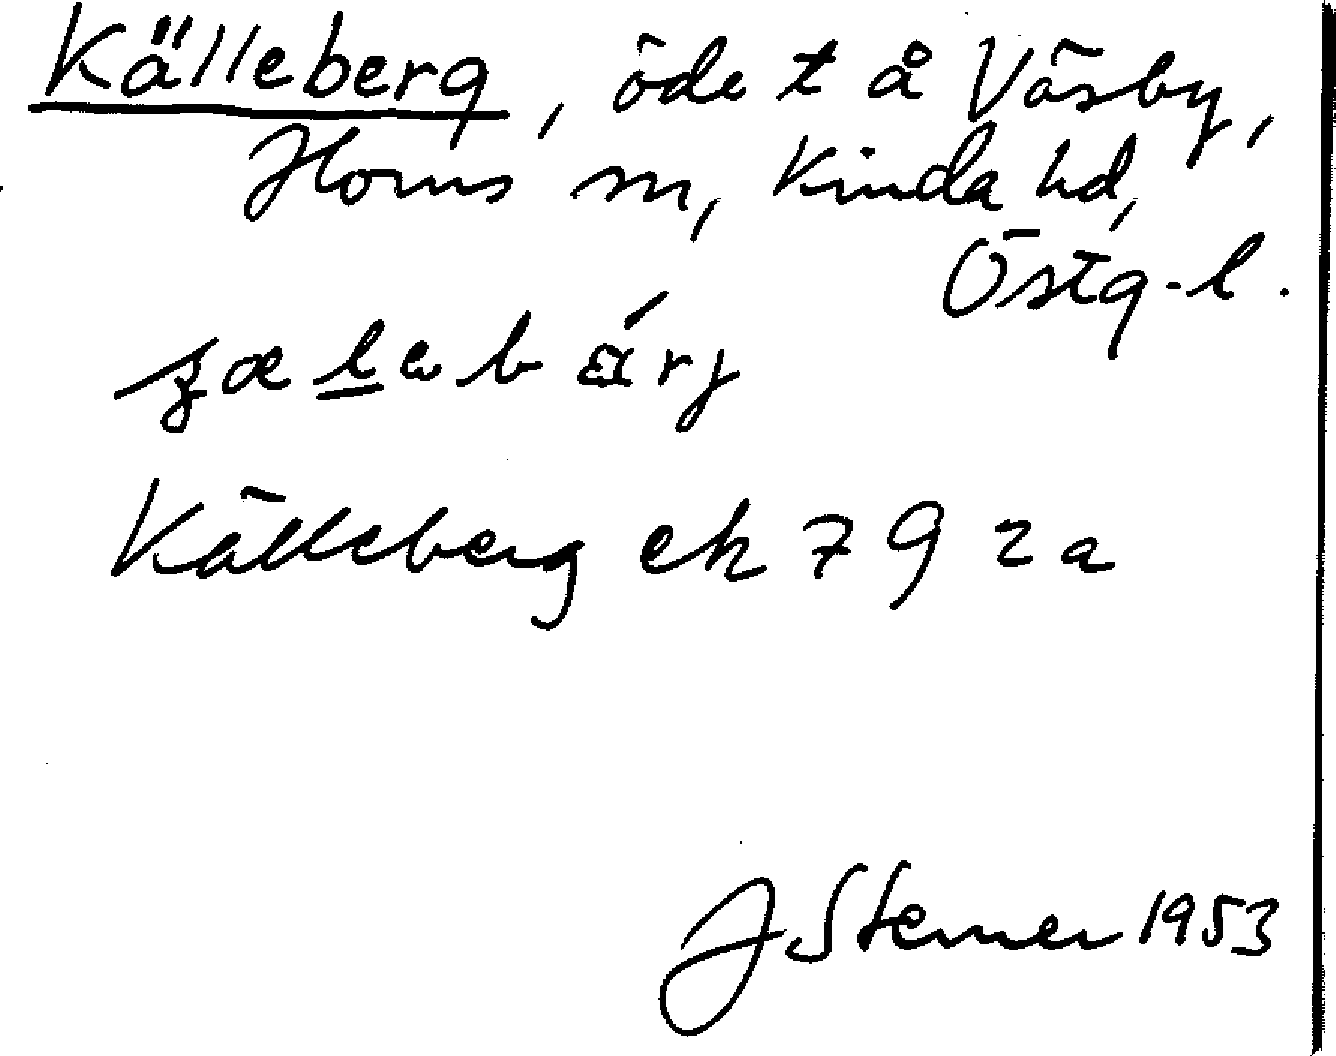 Källeberg, öde t å Väsby,
Horns sn, Kinda hd,
Östg-l.
Källeberg ek 79 2a
J Sterner 1953